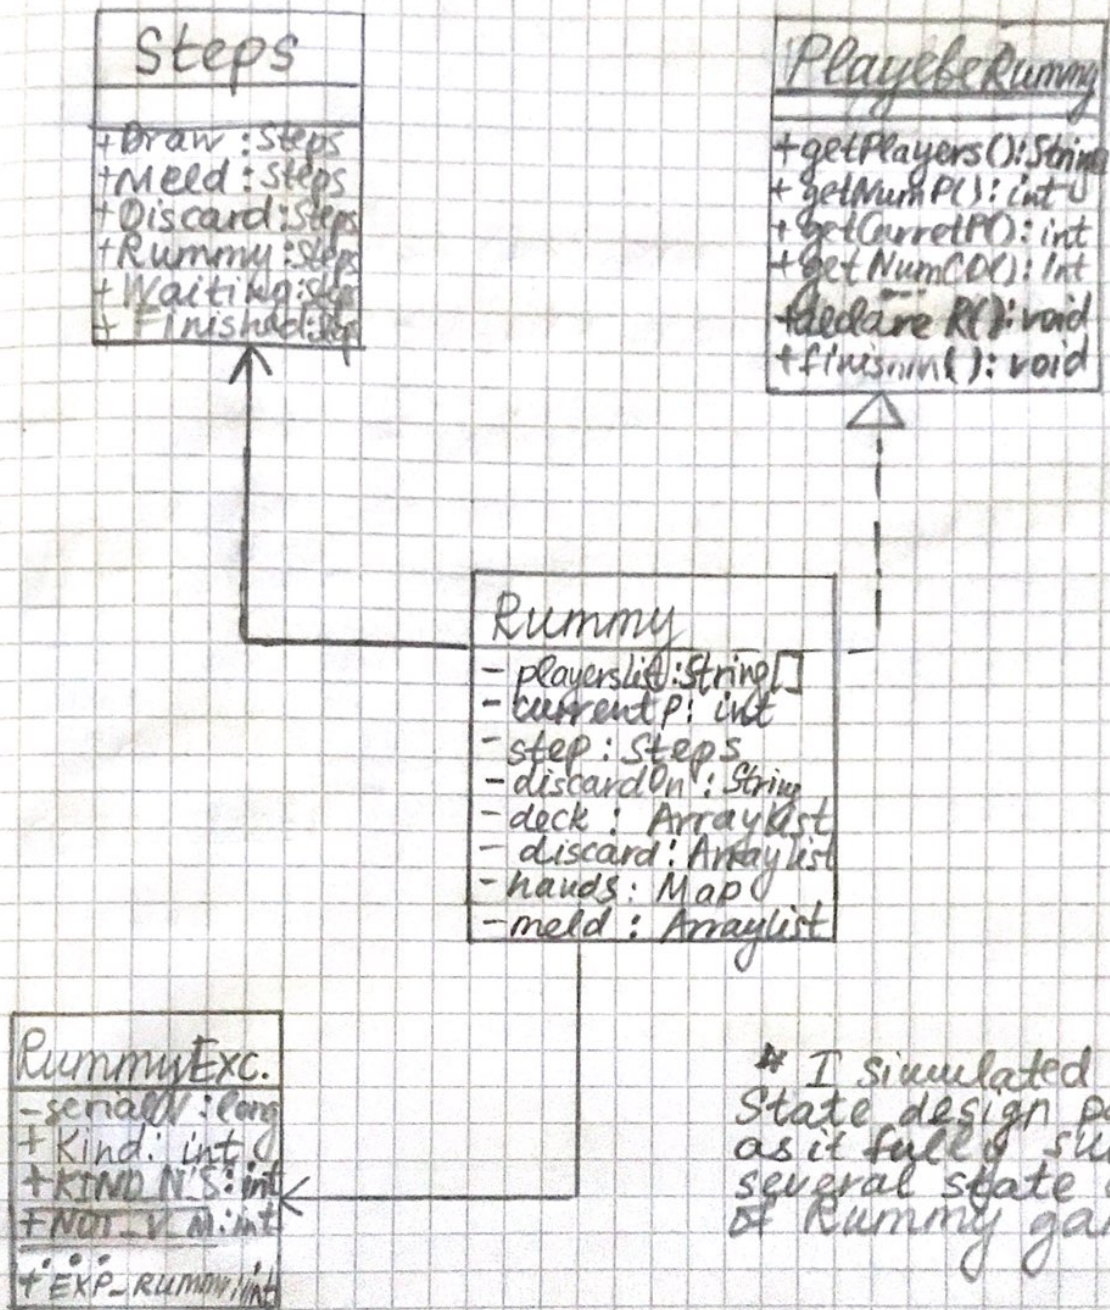 Steps
+Draw : Steps
+Meld : Steps
+Discard : Steps
+Rummy : Steps
+Waiting : Step
+ Finished : Step
PlayebeRummy
+getPlayers() : String
+ getNumP() : int
+ getCurretP() : int
+ get NumCD() : Int
+declare R() : void
+finishin() : void
Rummy
- playerslist : String[]
- currentp : int
- step : Steps
- discardOn : String
- deck : ArrayList
- discard : Arraylist
- hands : Map
- meld : Arraylist
RummyExc.
- serialV : long
+ Kind : int
+KIND_N_S : int
+NOT_V_M : int
...
+ EXP_RUMMY : int
* I simulated
State design
as it fully
several state
of Rummy